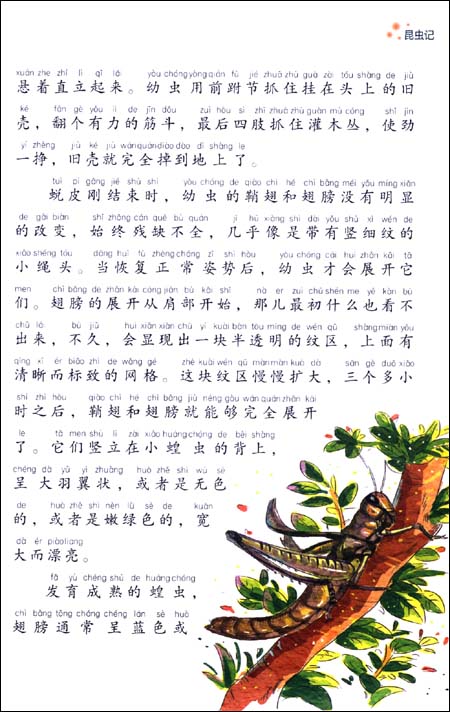 昆虫记
xuán zhe zhí lì qǐ lái yòu chóng yòng qián fū jié zhuā zhù guà zài tóu shàng de jiù
悬着直立起来。幼虫用前跗节抓住挂在头上的旧
ké fān gè yǒu lì de jīn dǒu zuì hòu sì zhī zhuā zhù guàn mù cóng shǐ jìn
壳，翻个有力的筋斗，最后四肢抓住灌木丛，使劲
yī zhèng jiù ké jiù wán quán diào dào dì shàng le
一挣，旧壳就完全掉到地上了。
tuì pí gāng jié shù shí yòu chóng de qiào chì hé chì bǎng méi yǒu míng xiǎn
蜕皮刚结束时，幼虫的鞘翅和翅膀没有明显
de gǎi biàn shǐ zhōng cán quē bù quán jī hū xiàng shì dài yǒu shù xì wén de
的改变，始终残缺不全，几乎像是带有竖细纹的
xiǎo shéng tóu dāng huī fù zhèng cháng zī shì hòu yòu chóng cái huì zhǎn kāi tā
小绳头。当恢复正常姿势后，幼虫才会展开它
men chì bǎng de zhǎn kāi cóng jiān bù kāi shǐ nà er zuì chū shén me yě kàn bù
们。翅膀的展开从肩部开始，那儿最初什么也看不
chū lái bù jiǔ huì xiǎn xiàn chū yí kuài bàn tòu míng de wén qū shàng miàn yǒu
出来，不久，会显现出一块半透明的纹区，上面有
qīng xī ér biāo zhì de wǎng gé zhè kuài wén qū màn màn kuò dà sān gè duō xiǎo
清晰而标致的网格。这块纹区慢慢扩大，三个多小
shí zhī hòu qiào chì hé chì bǎng jiù néng gòu wán quán zhǎn kāi
时之后，鞘翅和翅膀就能够完全展开
le tā men shù lì zài xiǎo huáng chóng de bèi shàng
了。它们竖立在小蝗虫的背上，
chéng dà yǔ yì zhuàng huò zhě shì wú sè
呈大羽翼状，或者是无色
de huò zhě shì nèn lǜ sè de kuān
的，或者是嫩绿色的，宽
dà ér piào liang
大而漂亮。
fā yù chéng shú de huáng chóng
发育成熟的蝗虫，
chì bǎng tōng cháng chéng lán sè huò
翅膀通常呈蓝色或